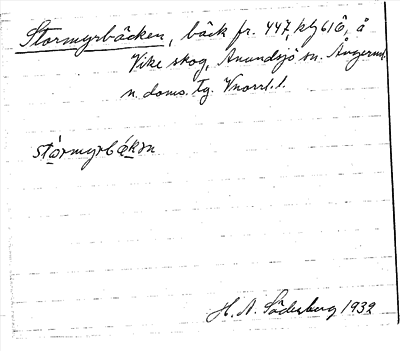 Stormyrbäcken, bäck fr. 447, kbg 616, å
Vike skog, Anundsjö sn. Ångerml.
n. doms. tg. Vnorrl. l.
stórmyrbäkɛn
H. A. Söderberg 1932